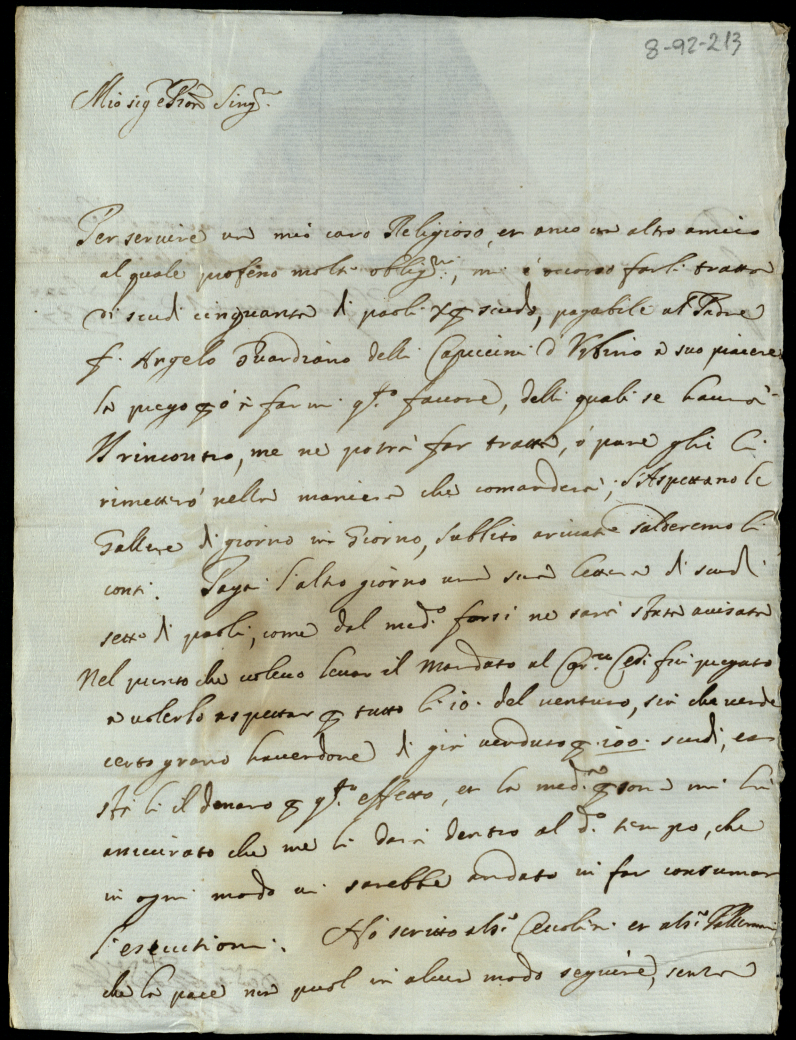 8-92-213
Mio sig.r e Pron Sing.re
Per servire un mio caro Religioso, et anco un altro amico
al quale professo molti oblig.ni, mi è occorso farli tratta
di scudi cinquanta di paoli X p scudo, pagabile al Padre
f. Angelo Guardiano delli Capuccini d'Urbino a suo piacere
la prego p ò a farmi q.to favore, delli quali se haverà
rincontro, me ne potrà far tratta, ò pure ghli li
rimetterò nella maniera che comanderà; s'Aspettano le
Gallere di giorno in Giorno, subbito arivate salderemo li
conti. Pagai l'altro giorno una sua lettera di scudi
sette di paoli, come dal med.o forsi ne sarà stata avisata
Nel punto che volevo levar il Mandato al Cesi fui pregato
a volerlo aspettar p tutto li 10. del venturo, sin che vende
certo grano havendone di già venduto p 100. scudi, et
stà lì il denaro p q.to effetto, et la med.ma psona mi hà
assicurato che me li darà dentro al d.o tempo, che
in ogni modo vi sarebbe andato in far consumar
l'esecutioni. Hò scritto al s.r et al s.r
che la pace non puol in alcun modo seguire, senza